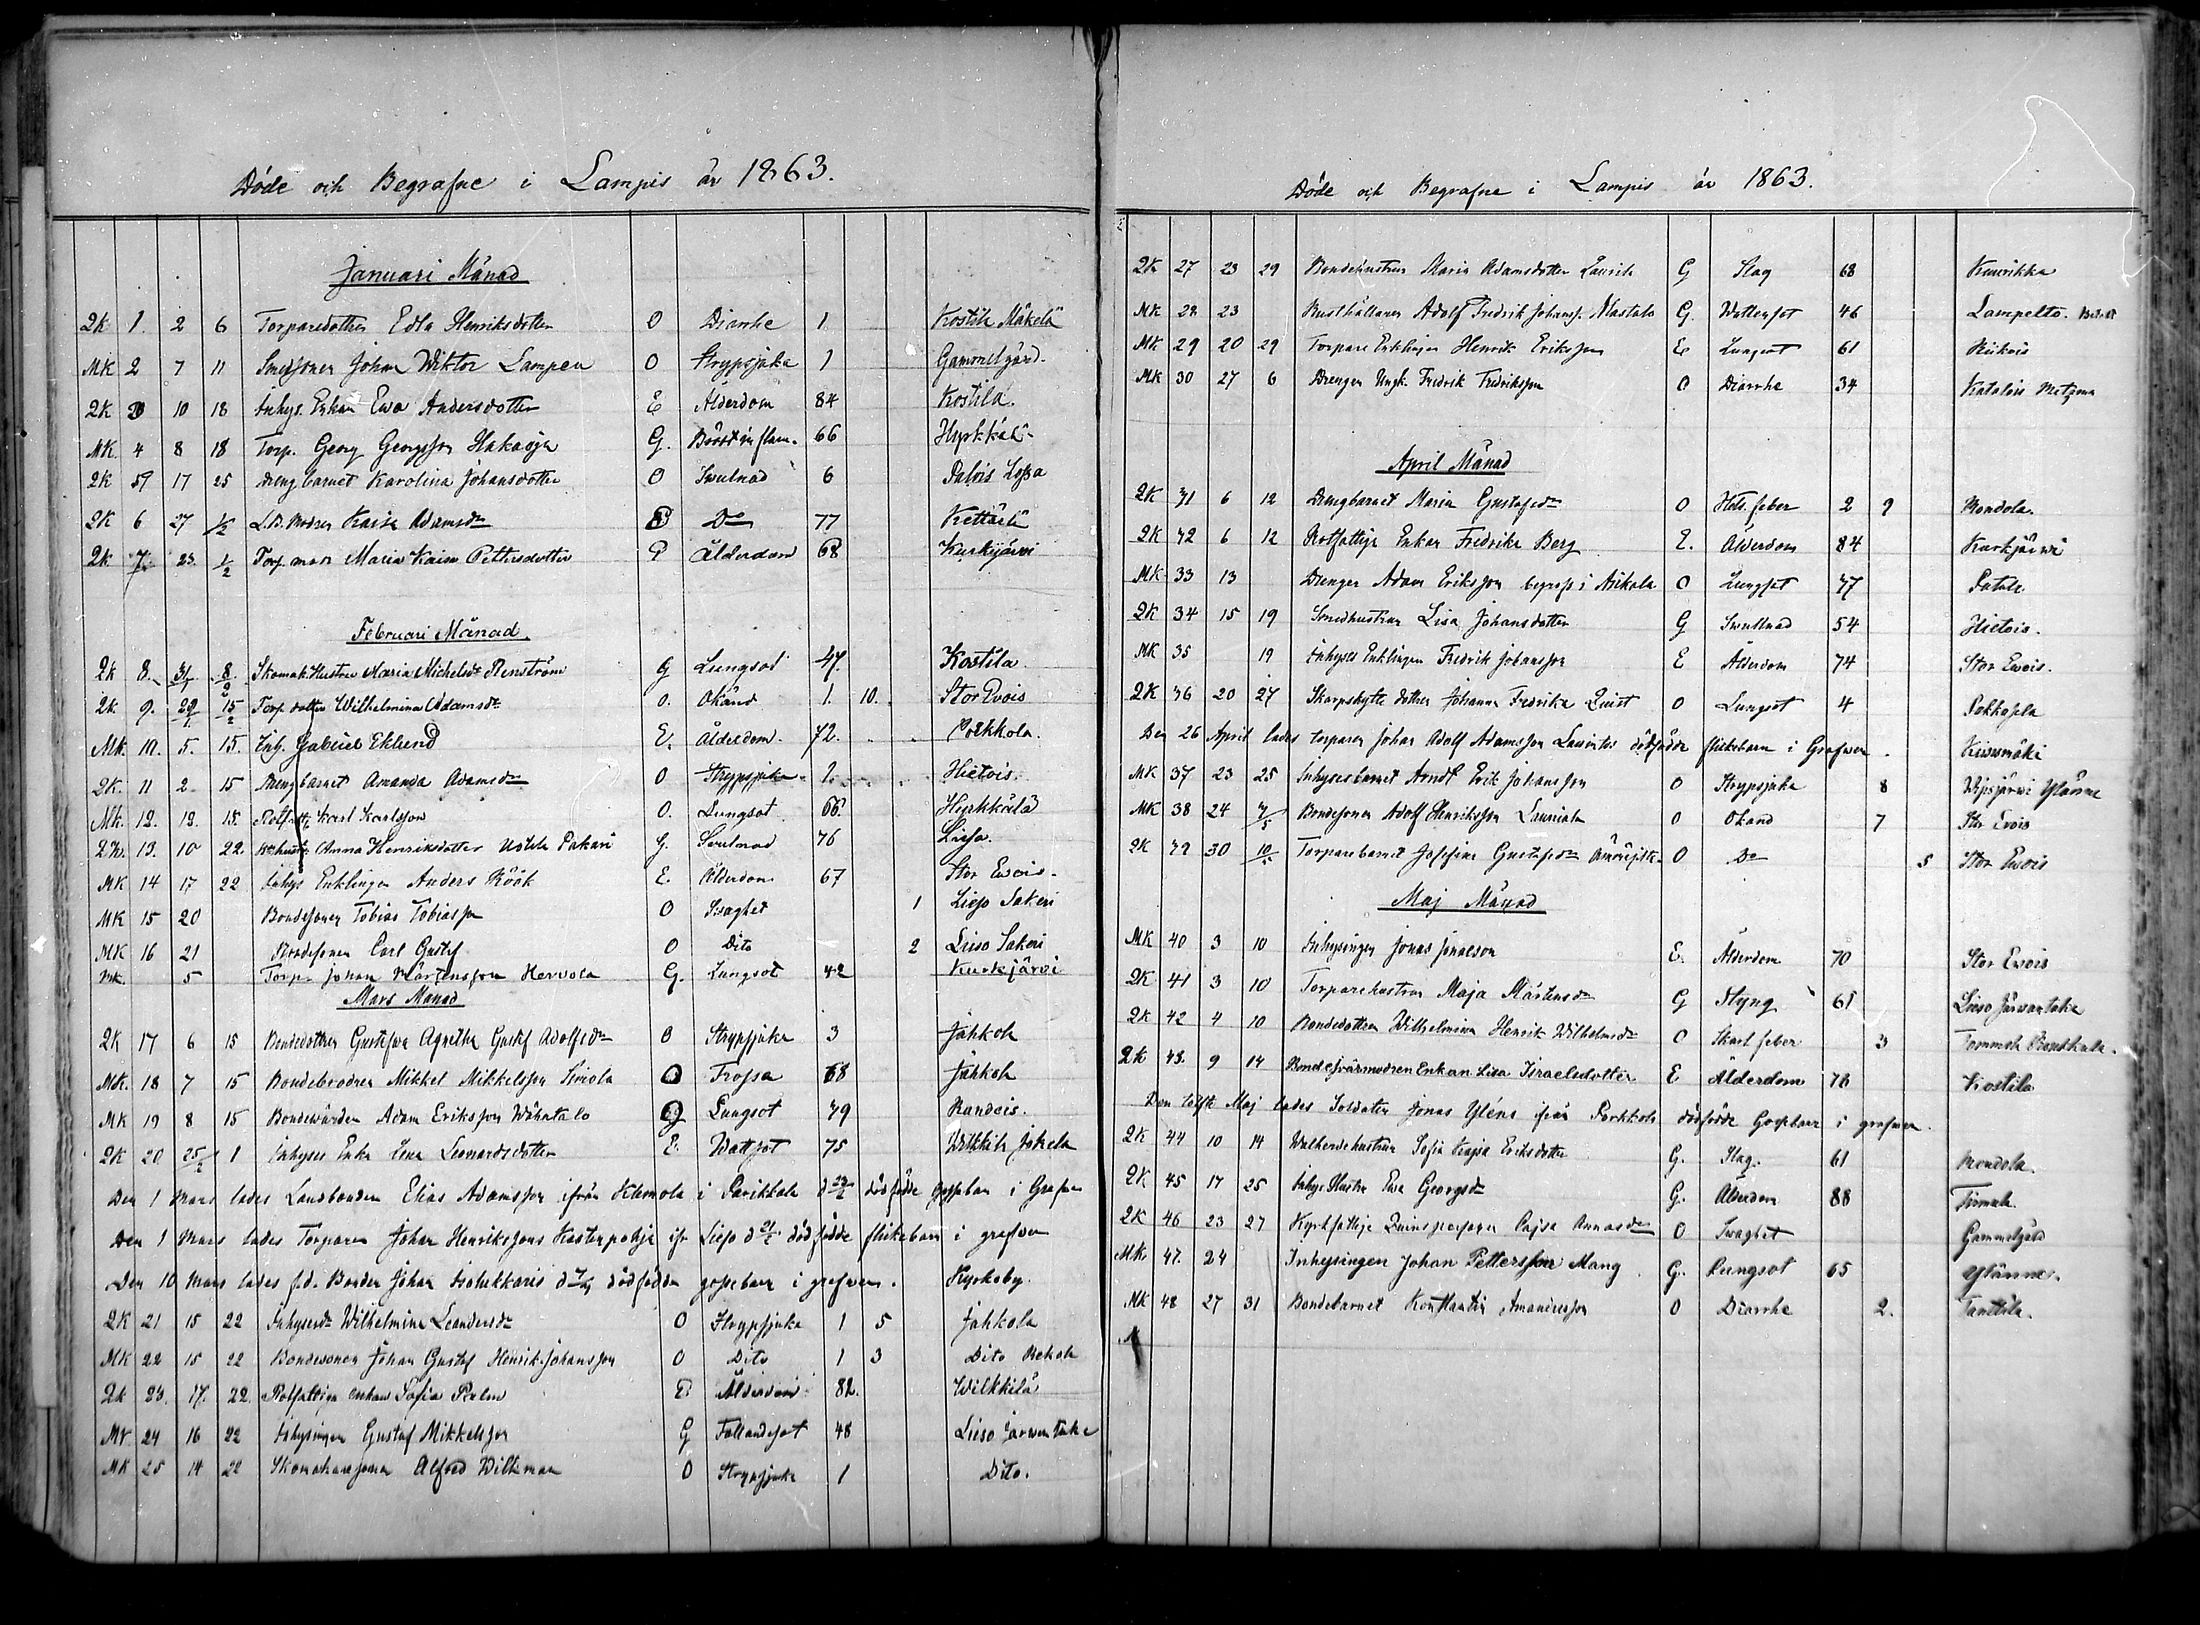 Döde och Begrafne i Lampis år 1863.
Januari Månad
QK 1. 2 6 Torparedottren Edla Henriksdotter O Diarrhe 1. Kostila Mäkelä
MK 2 7 11 Smedsonen Johan Wiktor Lampen O Strypsjuka 1 Gammelgård.
QK 3 10 18 Inhys. Enkan Ewa Andersdotter E Ålderdom 84 Kostila.
MK. 4 8 18 Torp. Georg Georgsson Hakaoja G. Bröstinflam. 66 Hyrkkälä.
QK 5 17 25 Drengbarnet Karolina Johansdotter O Swulnad 6 Palois
QK 6 27 1/2 Modren Kaisa Adamsdr Do 77
QK 7. 23. 1/2 Torp. mor Maria Kaisa Pettersdotter Ålderdom 68 Kurkijärvi
Februari Månad.
QK 8. 31/1 8/2 Skomak. Hustru Maria Michelsdr Renström G Lungsot 47. Kostila.
QK. 9. 29/1. 15/2 Torp. dotter Wilhelmina Adamsdr O. Okänd 1. 10. Stor Evois
MK. 10. 5. 15. Inh. Gabriel Eklund E. Ålderdom. 72. Porkkola.
QK. 11 2 15 Drengbarnet Amanda Adamsdr O Strypsjuka Hietois.
MK. 12. 12. 15. Rotfatt. Karl Karlsson O. Lungsot 66. Hyrkkälä
QK. 13. 10 22. Anna Henriksdotter Pakari G. Swulnad 76 Lieso.
MK 14 17 22 Inhys Enklingen Anders Köök E. Ålderdom 67 Stor Evois.
MK 15 20 Bondesonen Tobias Tobiasson O Svaghet 1 Lieso Sakeri
MK 16 21 Bondesonen Carl Gustaf O Dito 2 Lieso Sakeri
MK. 5 Torp. Johan Mårtensson Hervola G. Lungsot 42 Kurkjärvi
Mars Månad
QK 17 6 15 Bondedottren Gustafva Agnetha Gustaf Adolfsdr O Strypsjuka 3 Jahkola
MK. 18 7 15 Bondebrodren Mikkel Mikkelsson Simola O Trossa 68 Jahkola
MK 19 8 15 Bondevärden Adam Eriksson Wähätalo G Lungsot 79 Kandois.
QK 20 25/2 1 Inhyses Enka Lena Leonardsdotter E. Wattsot 75 Wilkkilä Jokela
Den 1 Mars lades Landbonden Elias Adamsson ifrån Klemola i Pariktala d 24/2 dödfödde gossbarn i Grafven
Den 1 Mars lades Torparen Johan Henrikssons Kastenpohja ifr Lieso d 21/2 dödfödde flickebarn i grafven
Den 10 Mars lades f.d. Bonden Johan dödfödda gossebarn i grafven. Kyrkoby.
QK 21 15 22 Inhysesdr Wilhelmina Leandersdr O Strypsjuka 1 5 Jahkola
MK 22 15 22 Bondesonen Johan Gustaf Henrik Johansson O Dito 1 3 Dito Rekola
QK 23. 17. 22. Rotfattiga enkan Sofia Palm E Ålderdom 82. Wilkkilä
MK 24 16 22 Inhysingen Gustaf Mikkelsson G Fallandesot 48 Lieso Järventaka
MK 25 14 22 Skomakaresonen Alfred Wilkman O Strypsjuka 1 Dito.
Döde och Begrafne i Lampis år 1863.
QK 27 23 29 Bondehustrun Maria Adamsdotter Laurila G Slag 68 Kuurikka
MK 28 23 Rusthållaren Adolf Fredrik Johanss. Mastalo G. Wattensot 46 Lampelto.
MK 29 20 29 Torpare Enklingen Henrik Eriksson E Lungsot 61 Riikois
MK 30 27 6 Drengen Ungk. Fredrik Fredriksson O Diarrhe 34 Katalois
April Månad
QK 31 6 12 Drengbarnet Maria Gustafsdr O Hets. feber 2 9 Mondola.
QK 32 6 12 Rotfattige Enkan Fredrika Berg E. Ålderdom 84 Kurkjärwi
MK 33 13 Drengen Adam Eriksson begrafs i Asikala O Lungsot 77
QK 34 15 19 Smedhustrun Lisa Johansdotter G Swullnad 54 Hietois.
MK 35 19 Inhyses Enklingen Fredrik Johansson E Ålderdom 74 Stor Ewois.
QK 36 20 27 Skarpskytte dottren Johanna Fredrika Quist O Lungsot 4
Den 26 April lades torparen Johan Adolf Adamsson dödfödde flickebarn i Grafwen.
MK 37 23 25 Inhysesbarnet Arndt Erik Johansson O Strypsjuka 8
MK 38 24 7/5 Bondesonen Adolf Henriksson Lauriala O Okänd 7 Stor Evois
QK 39 30 10/5 Torparebarnet Josefina Gustafsdr O Do 5 Stor Ewois
Maj Månad
MK 40 3 10 Inhysingen Jonas Jonasson E. Ålderdom 70 Stor Ewois
QK 41 3 10 Torparehustrun Maja Mårtensdr G Styng 61 Lieso Järwentaka
QK 42 4 10 Bondedottren Wilhelmina Henrik Wilhelmsdr O Skarl feber 3
QK 43. 9 14 Bondesvärmodren Enkan Lisa Israelsdotter E Ålderdom 78 Kostila
Den Maj lades Soldaten Jonas Yléns ifrån Porkkola dödfödde Gossebarn i grafven.
QK 44 10 14 Sofia Kajsa Eriksdotter G. Slag. 61 Mondola.
QK 45 17 25 Inhys. Hustru Ewa Georgsdr G. Ålderdom 88
QK 46 23 27 Kyrkfattige Quinspersonen Cajsa Annasdr O Svaghet Gammelgård
MK 47. 24 Inhysingen Johan Pettersson Mang G. Lungsot 65 Ylänne.
MK 48 27 31 Bondebarnet Konstantin Amandusson O Diarrhe 2. Tanttila.